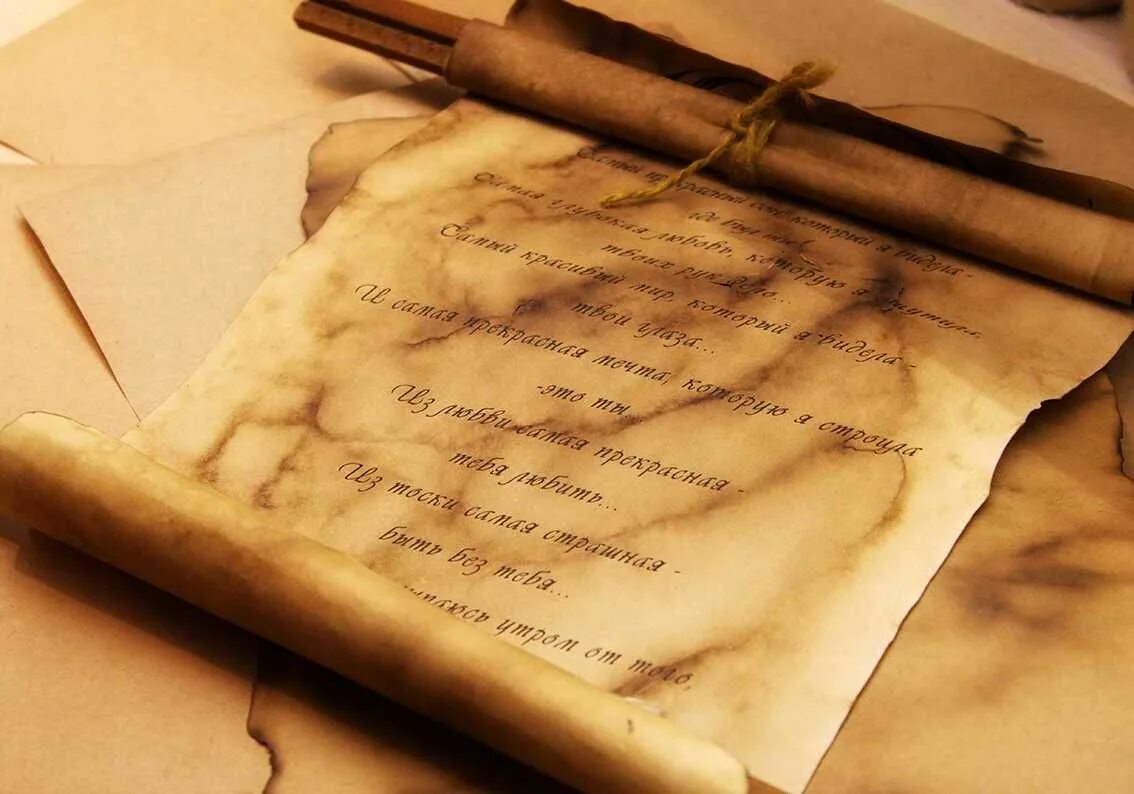 Самый прекрасный сон, который я видела -
где
Самая глубокая любовь, которую я
твоих рук дело...
Самый красивый мир, который я видела -
твои глаза...
И самая прекрасная мечта, которую я строила
-это ты...
Из любви самая прекрасная -
тебя любить...
Из тоски самая страшная -
быть без тебя...
утром от того,